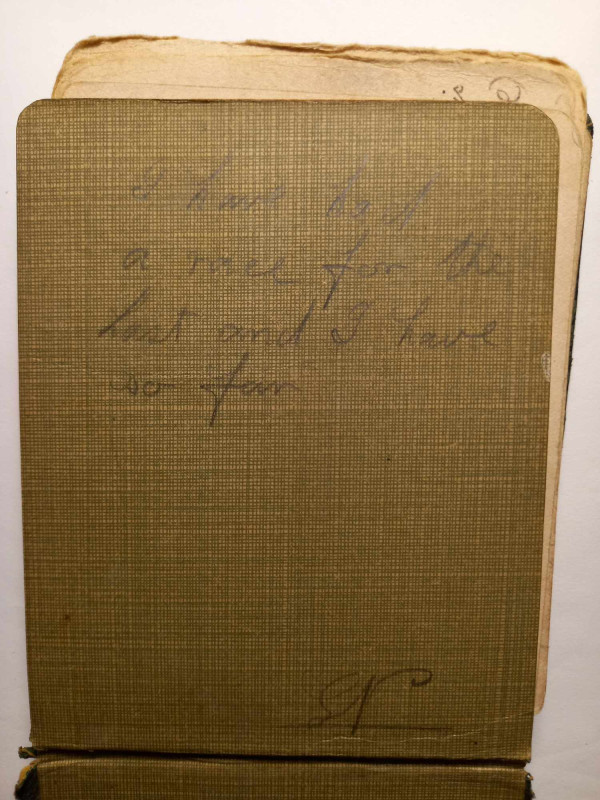 I have had
a race for the
last and I have
so far